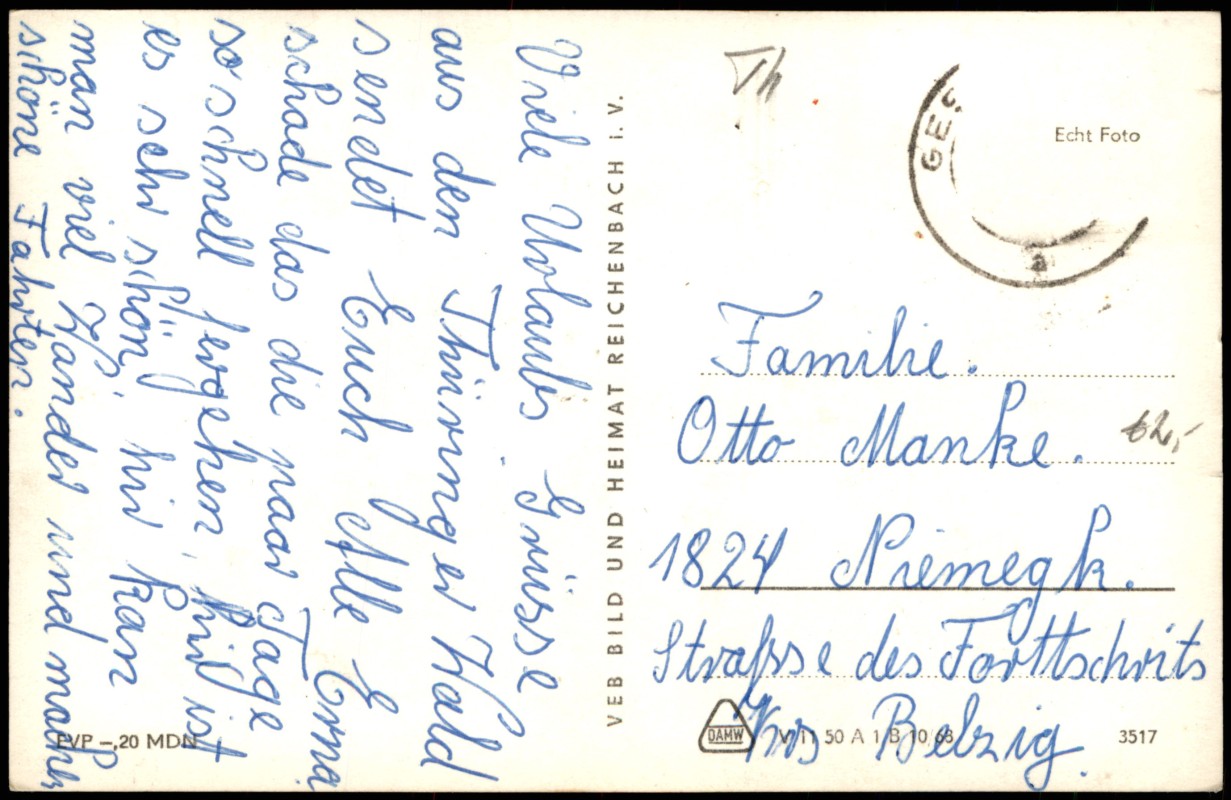 Viele Urlaubs Grüsse
aus den Thüringer Wald
sendet Euch Alle Erna
schade das die paar Tage
so schnell fergehen, hir ist
es sehr schön, hir kan
man viel Wandern und machen
schöne Fahrten.
VEB BILD UND HEIMAT REICHENBACH I. V.
Th
GES
a
Echt Foto
Familie.
Otto Manke.
1824 Niemegk.
Strafsse des Forttschrits
Krs Belzig.
EVP –,20 MDN
DAMW
V 11 50 A 1 B 10/68
3517